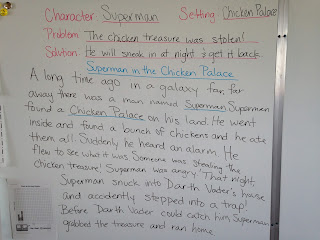 Character: Superman Setting: Chicken Palace
Problem: The chicken treasure was stolen!
Solution: He will sneak in at night & get it back.
Superman in the Chicken Palace
A long time ago in a galaxy far, far
away there was a man named Superman. Superman
found a Chicken Palace on his land. He went
inside and found a bunch of chickens and he ate
them all. Suddenly he heard an alarm. He
flew to see what it was. Someone was stealing the
chicken treasure! Superman was angry. That night,
Superman snuck into Darth Vader's house
and accidently stepped into a trap!
Before Darth Vader could catch him, Superman
grabbed the treasure and ran home.